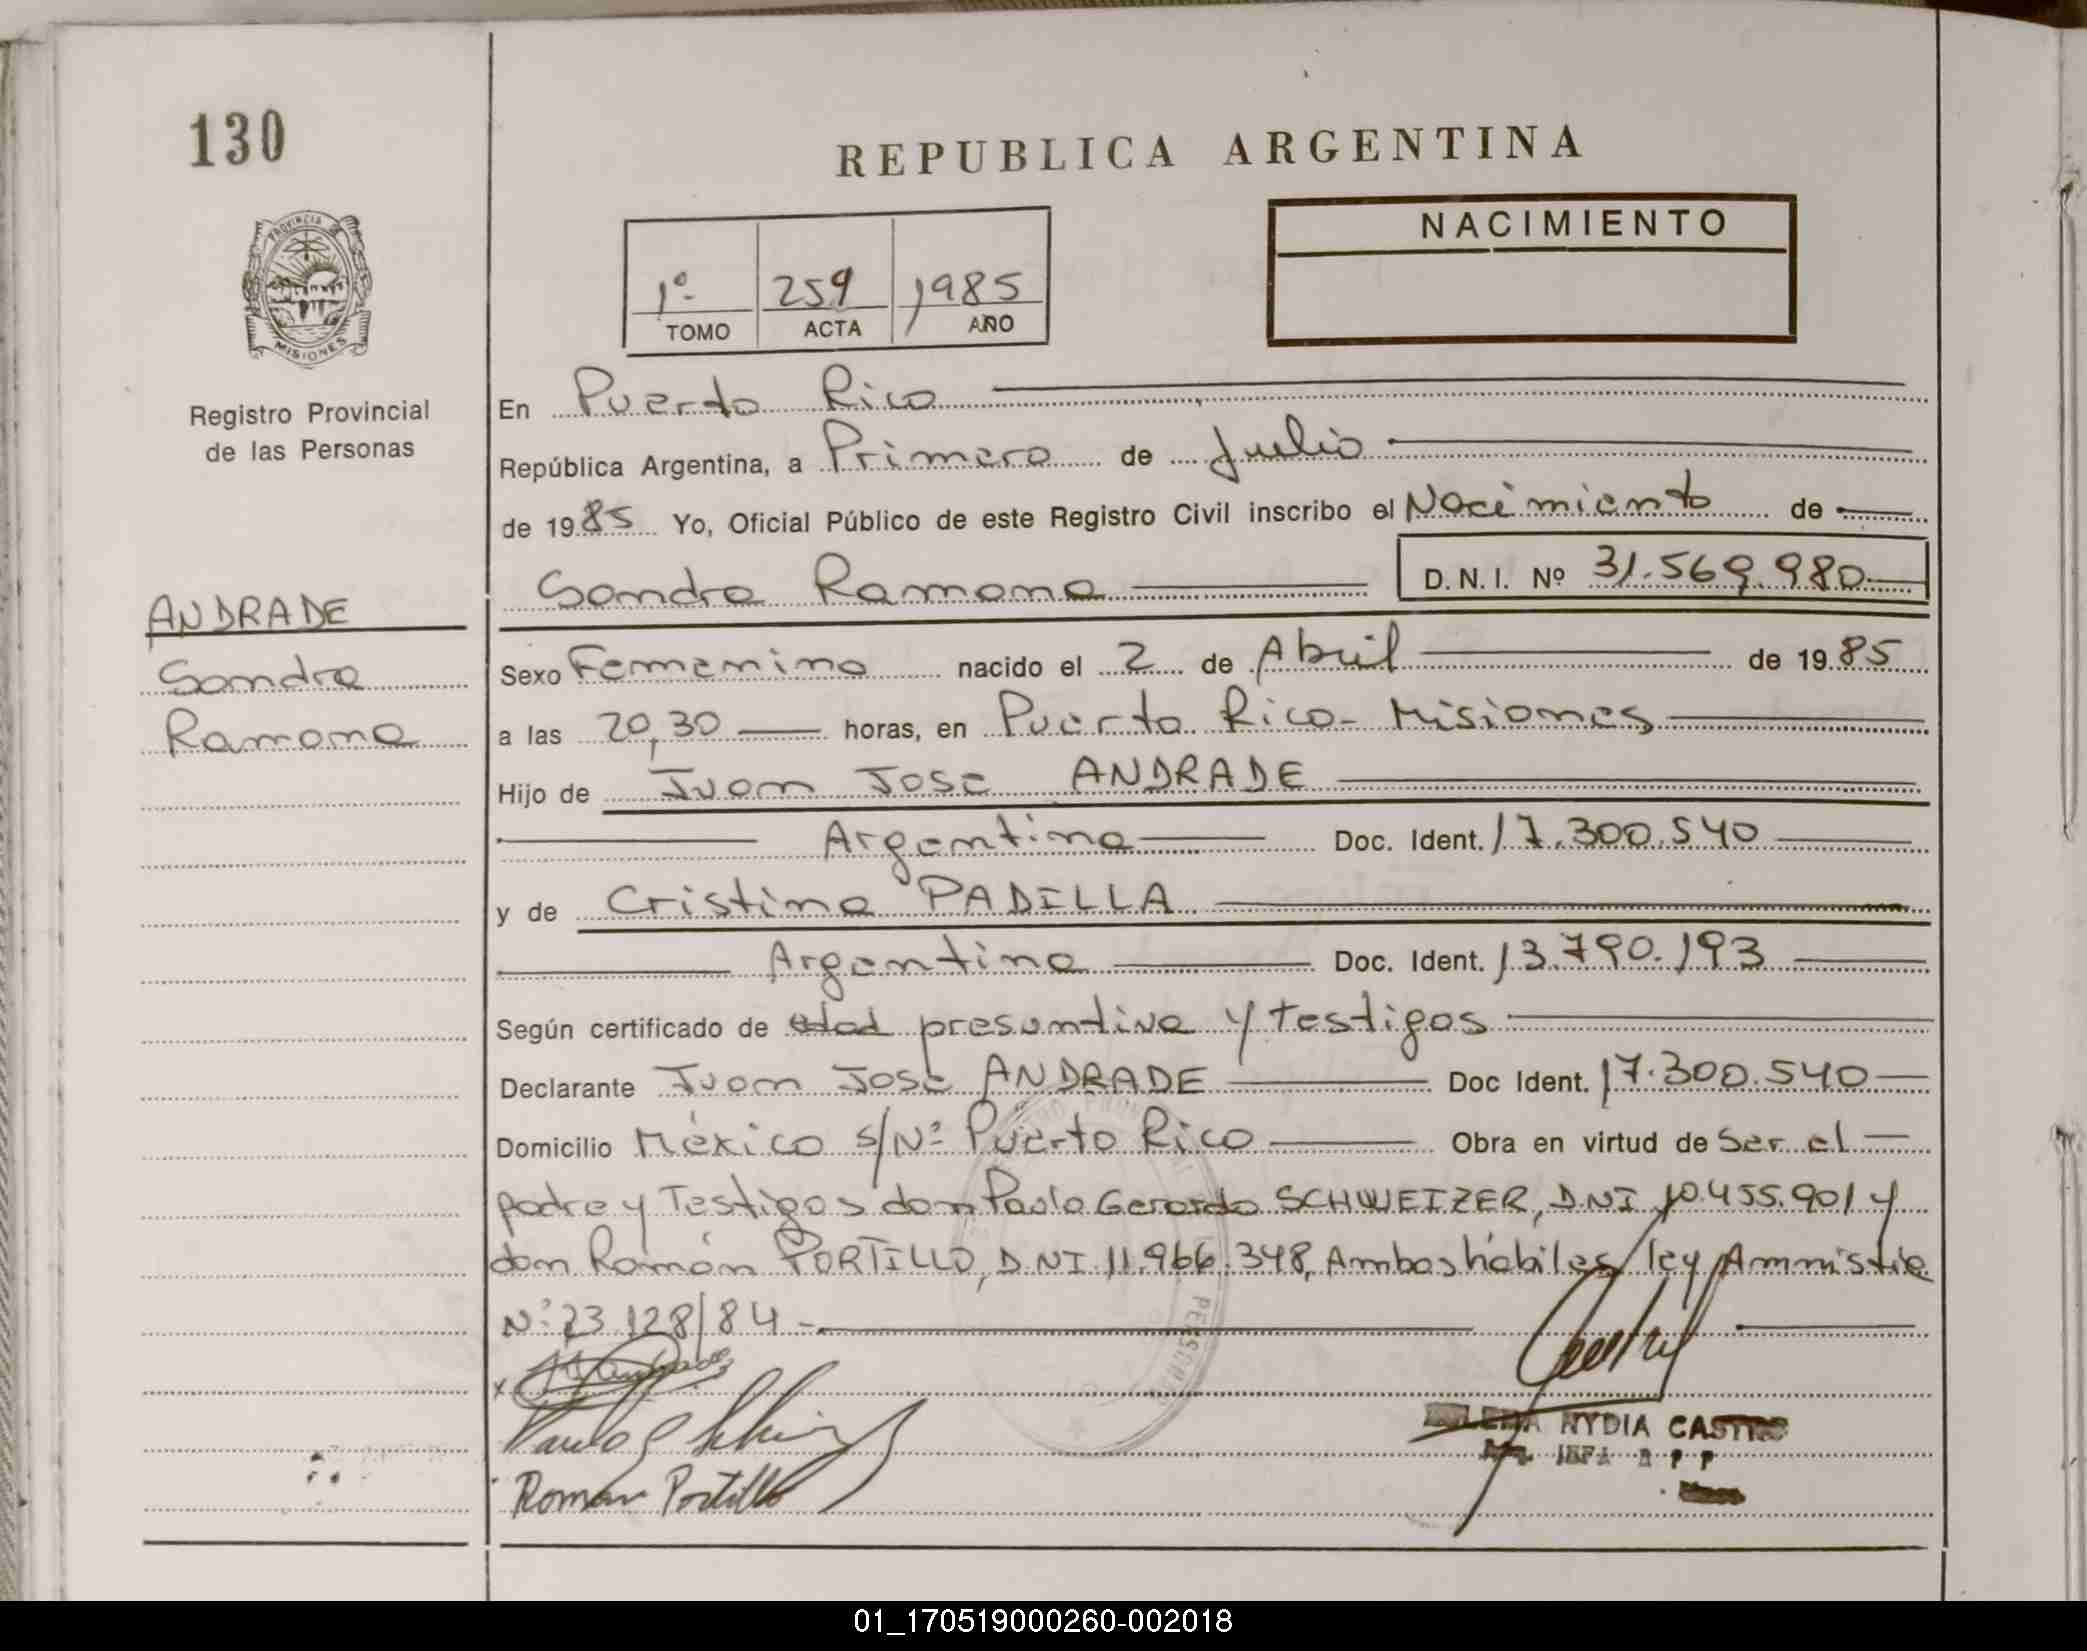 130
REPUBLICA ARGENTINA
PROVINCIA DE
MISIONES
NACIMIENTO
1º 259 1985
TOMO ACTA AÑO
Registro Provincial
de las Personas
En Puerto Rico
República Argentina, a Primero de Julio
de 1985 Yo, Oficial Público de este Registro Civil inscribo el Nacimiento de
Sandra Ramona D.N.I. Nº 31.569.980
ANDRADE
Sandra
Ramona
Sexo Femenino nacido el 2 de Abril de 1985
a las 20,30 horas, en Puerto Rico - Misiones
Hijo de Juan José ANDRADE
Argentino Doc. Ident. 17.300.540
y de Cristina PADILLA
Argentina Doc. Ident. 13.790.193
Según certificado de edad presuntiva y testigos
Declarante Juan José ANDRADE Doc Ident. 17.300.540
Domicilio México s/Nº Puerto Rico Obra en virtud de ser el
padre y Testigos don Paulo Gerardo SCHWEIZER, D.N.I 10.455.901 y
don Román PORTILLO, D.N.I 11.966.348, Ambos hábiles/ley Amnistía
Nº 23.128/84 -
Román Portillo
NYDIA CASTRO
01_170519000260-002018